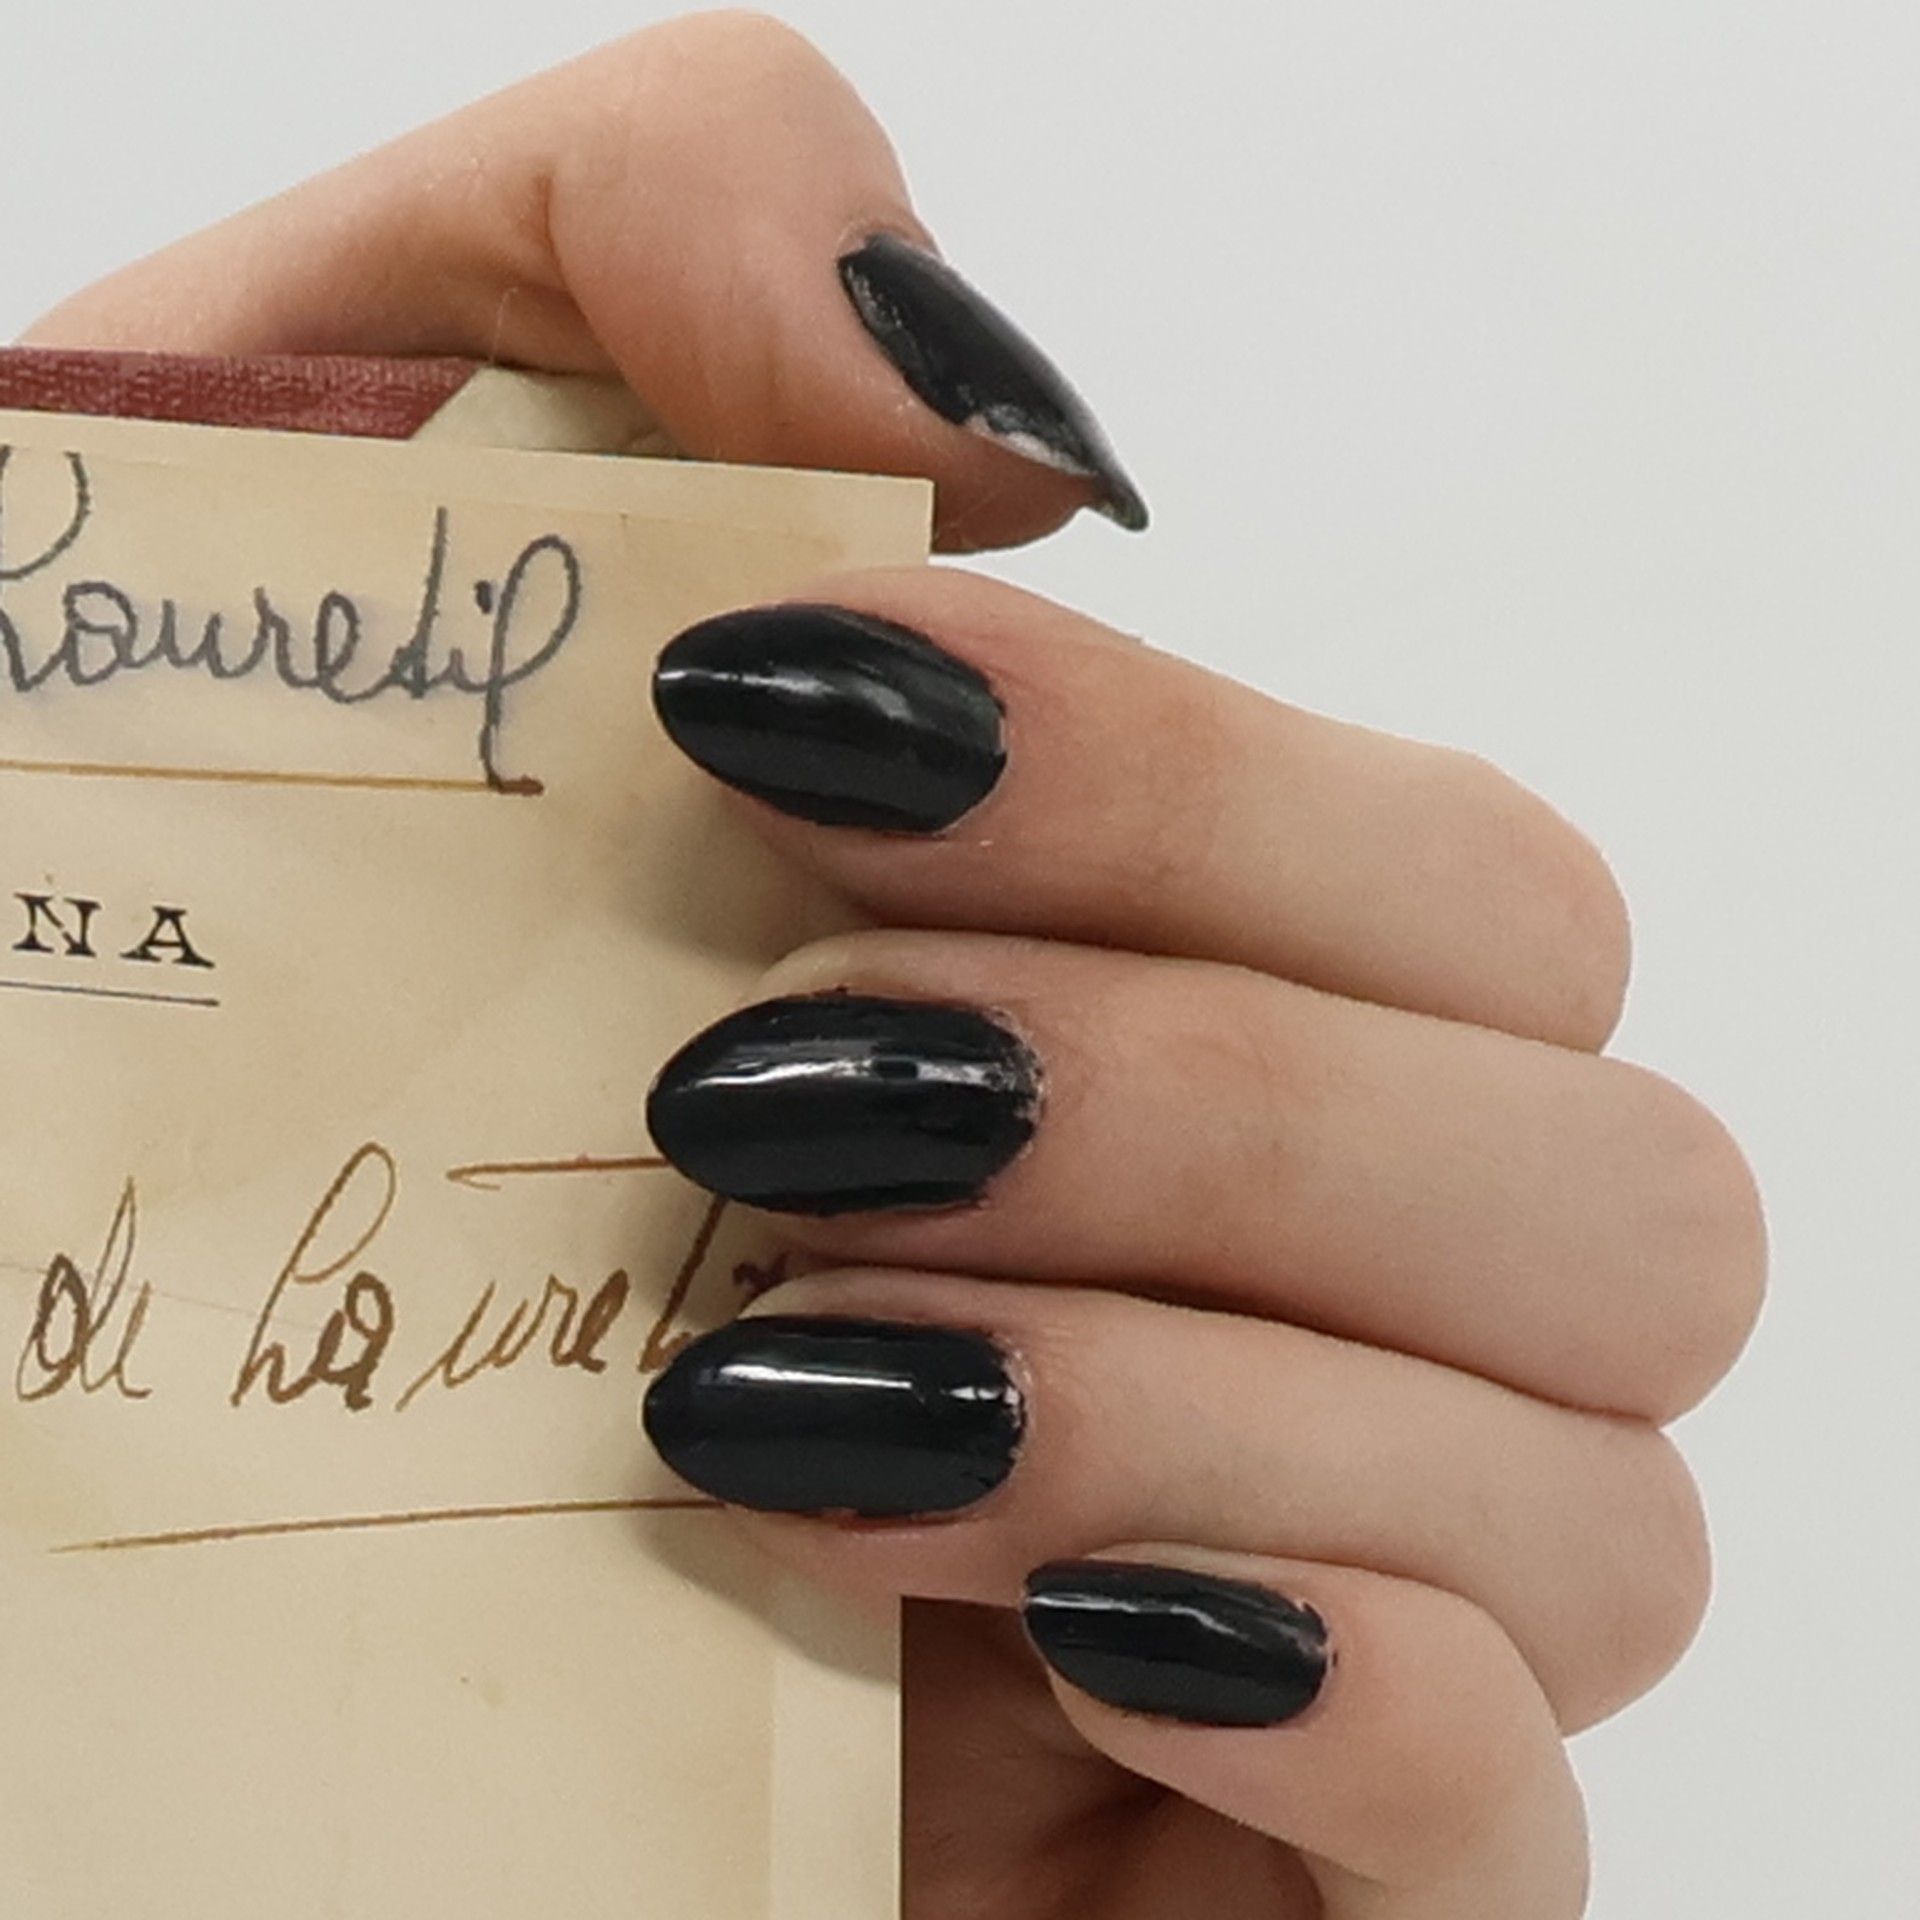 Lauretil
NA
de Lauret